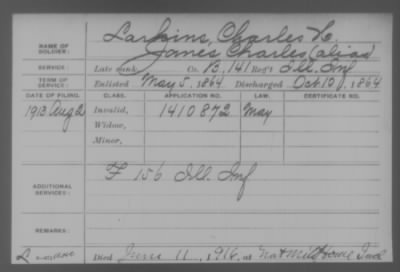 NAME OF SOLDIER: Larkins, Charles H.
James Charles (alias)
SERVICE: Late rank, Co. B, 141 Reg't Ill. Inf
TERM OF SERVICE: Enlisted May 5, 1864 Discharged Oct 10, 1864
DATE OF FILING. CLASS. APPLICATION NO. LAW. CERTIFICATE NO.
1913 Aug 2 Invalid, 1410872 May
Widow,
Minor,
ADDITIONAL SERVICES: F 156 Ill. Inf
REMARKS:
Died June 11, 1916, at Nat Mil Home Ind